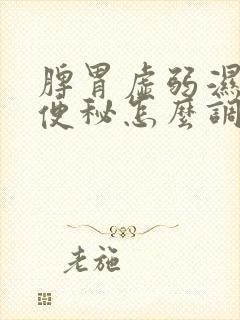 脾胃虛弱濕
便秘怎麼調
老施